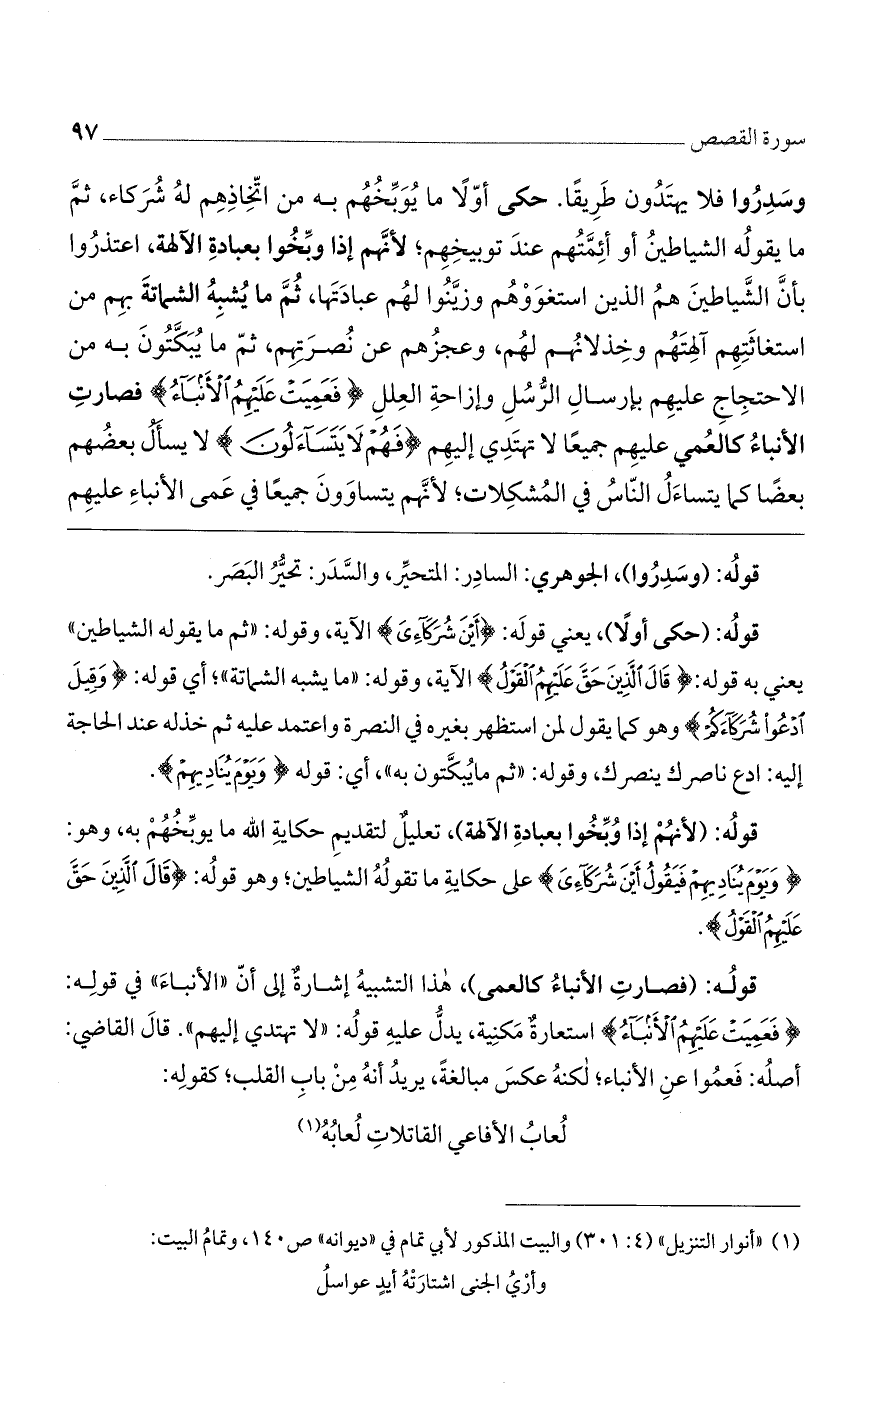 سورة القصص ٩٧
وسَدِرُوا فلا يهتَدُون طَرِيقًا. حكى أوّلًا ما يُوَبِّخُهُم بـه من اتِّخاذِهِم لهُ شُرَكاء، ثمَّ
ما يقولُه الشياطينُ أو أئِمَّتُهم عندَ توبيخِهِم؛ لأنَّهم إذا وبِّخُوا بعبادةِ الآلهة، اعتذرُوا
بأنَّ الشَّياطينَ همُ الذين استغوَوْهُم وزيَّنُوا لهُم عبادتَها، ثُمَّ ما يُشبِهُ الشماتةَ بهم من
استغاثَتِهِم آلهتَهُم وخِذلانُهـم لهُم، وعجزُهم عن نُصـرَتِهِم، ثمّ ما يُبَكَّتُونَ بـه من
الاحتجاجِ عليهم بإرسـالِ الرُّسُلِ وإزاحةِ العِللِ ﴿ فَعَمِيَتْ عَلَيْهِمُ ٱلْأَنۢبَآءُ ﴾ فصارتِ
الأنباءُ كالعُمي عليهم جميعًا لا تهتَدِي إليهم ﴿ فَهُمْ لَا يَتَسَآءَلُونَ ﴾ لا يسأَلُ بعضُهم
بعضًا كما يتساءَلُ النّاسُ في المُشكِلات؛ لأنَّهم يتساوَونَ جميعًا في عَمى الأنباءِ عليهِم
قولُه: (وسَدِرُوا)، الجوهري: السادِر: المتحيِّر، والسَّدَر: تحيُّرُ البَصَر.
قولُه: (حكى أولًا)، يعني قولَه: ﴿أَيْنَ شُرَكَآءِىَ﴾ الآية، وقوله: «ثم ما يقوله الشياطين»
يعني به قوله: ﴿ قَالَ ٱلَّذِينَ حَقَّ عَلَيْهِمُ ٱلْقَوْلُ﴾ الآية، وقوله: «ما يشبه الشماتة»؛ أي قوله: ﴿ وَقِيلَ
ٱدْعُوا۟ شُرَكَآءَكُمْ﴾ وهو كما يقول لمن استظهر بغيره في النصرة واعتمد عليه ثم خذله عند الحاجة
إليه: ادع ناصرك ينصرك، وقوله: «ثم مايُبكَّتون به»، أي: قوله ﴿ وَيَوْمَ يُنَادِيهِمْ﴾.
قولُه: (لأنهُمْ إذا وُبِّخُوا بعبادةِ الآلهة)، تعليلٌ لتقديمِ حكايةِ الله ما يوبِّخُهُمْ به، وهو:
﴿ وَيَوْمَ يُنَادِيهِمْ فَيَقُولُ أَيْنَ شُرَكَآءِىَ ﴾ على حكايةِ ما تقولُهُ الشياطين؛ وهو قولُه: ﴿قَالَ ٱلَّذِينَ حَقَّ
عَلَيْهِمُ ٱلْقَوْلُ﴾.
قولُـه: (فصـارتِ الأنباءُ كالعمى)، هٰذا التشبيهُ إشـارةٌ إلى أنّ «الأنبـاءَ» في قولِـه:
﴿ فَعَمِيَتْ عَلَيْهِمُ ٱلْأَنۢبَآءُ﴾ استعارةٌ مَكنِية، يدلُّ عليهِ قولُه: «لا تهتدي إليهم». قالَ القاضي:
أصلُه: فَعمُوا عنِ الأنباء؛ لٰكنهُ عكسَ مبالغةً، يريدُ أنهُ مِنْ بابِ القلب؛ كقولِه:
لُعابُ الأفاعي القاتلاتِ لُعابُهُ(١)
(١) «أنوار التنزيل» (٤: ٣٠١) والبيت المذكور لأبي تمام في «ديوانه» ص١٤٠، وتمامُ البيت:
وأرْيُ الجنى اشتارَتْهُ أيدٍ عواسلُ